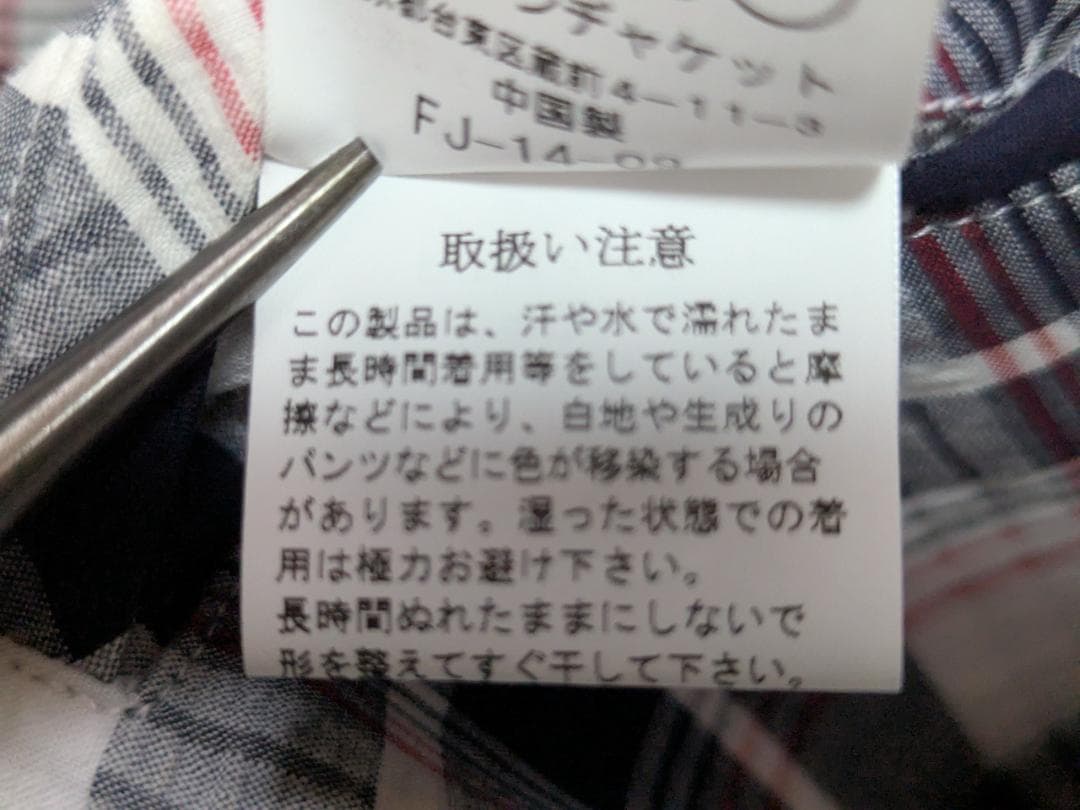 ンチャケット
京都台東区蔵前4-11-3
中国製
FJ-14-
取扱い注意
この製品は、汗や水で濡れたま
ま長時間着用等をしていると摩
擦などにより、白地や生成りの
パンツなどに色が移染する場合
があります。湿った状態での着
用は極力お避け下さい。
長時間ぬれたままにしないで
形を整えてすぐ干して下さい。